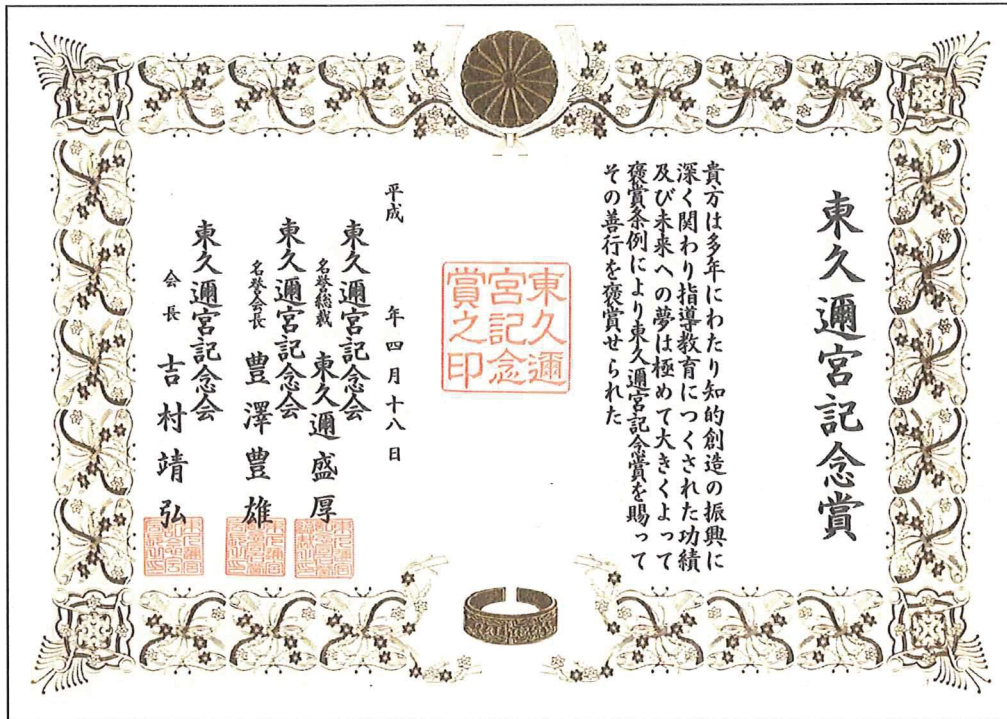 東久邇宮記念賞
貴方は多年にわたり知的創造の振興に
深く関わり指導教育につくされた功績
及び未来への夢は極めて大きくよって
褒賞条例により東久邇宮記念賞を賜って
その善行を褒賞せられた
東久邇
宮記念
賞之印
平成 年四月十八日
東久邇宮記念会
名誉総裁 東久邇盛厚
東久邇宮記念会
名誉会長 豊澤豊雄
東久邇宮記念会
会長 吉村靖弘